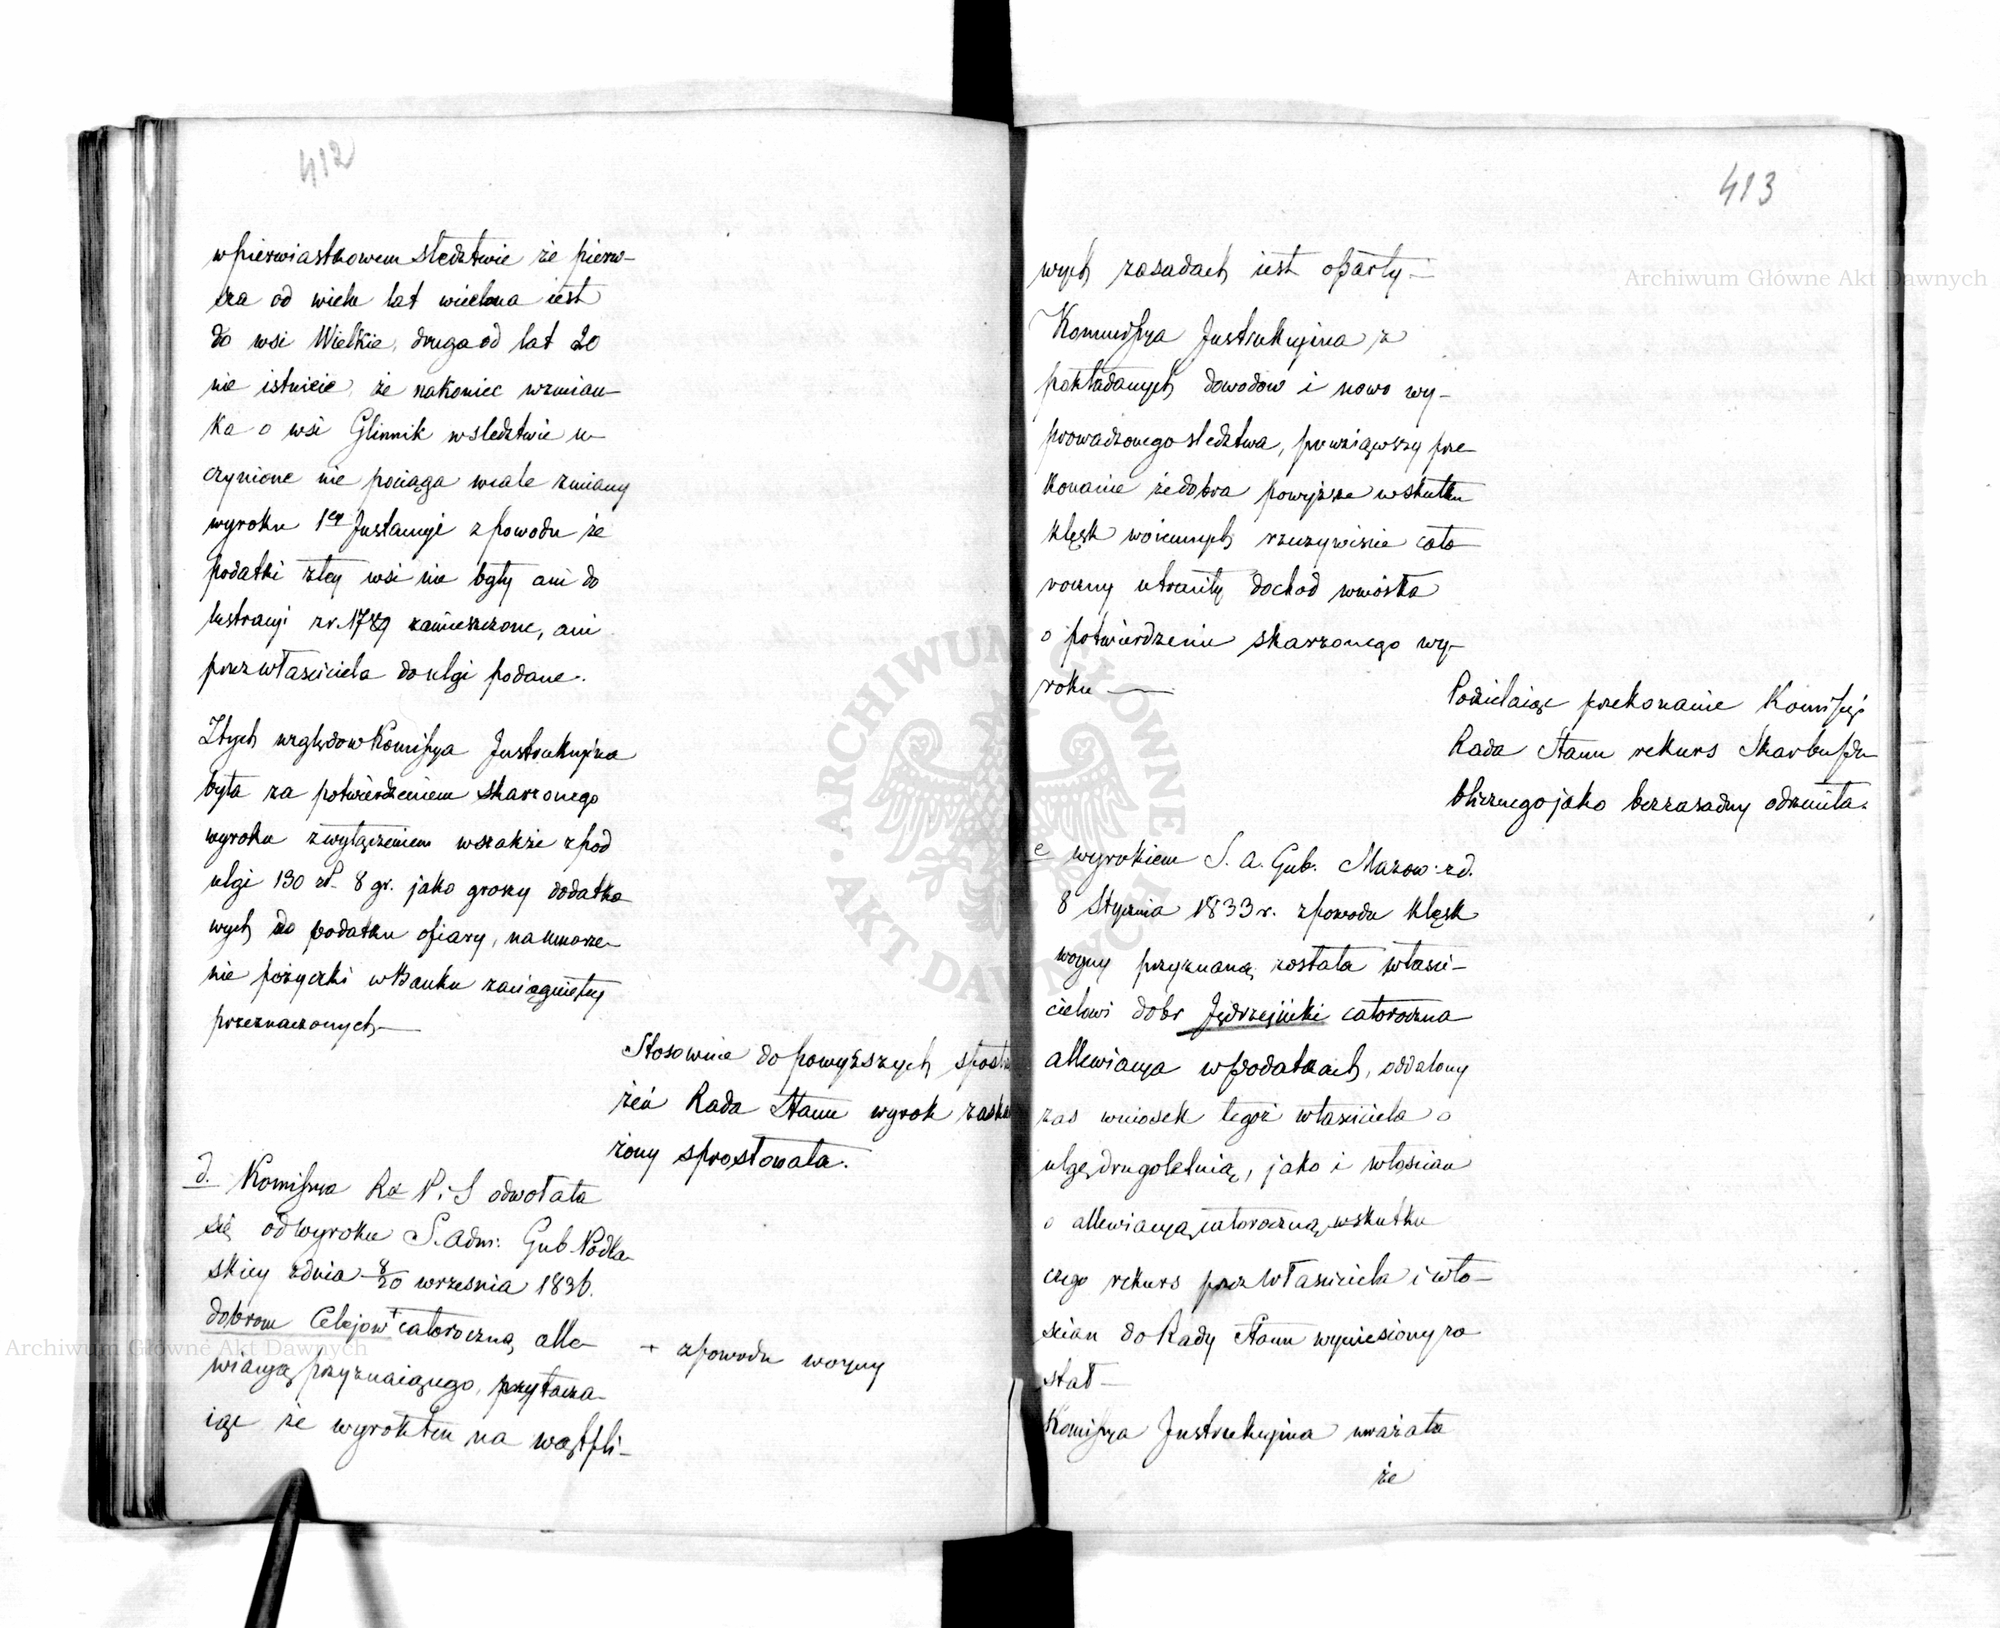 412
w pierwiastkowem sledztwie że pierw-
sza od wielu lat wcielona iest
do wsi Wielkie, druga od lat 20
nie istnieie, że nakoniec wzmian-
ka o wsi Glinnik w sledztwie u-
czynione nie pociąga wcale zmiany
wyroku 1ey Instancyi z powodu że
podatki z tey wsi nie były ani do
lustracyi z r. 1789 zamieszczone, ani
przez właściciela do ulgi podane.
Z tych względow Komissya Instrukcyjna
była za potwierdzeniem skarżonego
wyroku z wyłączeniem wszakże z pod
ulgi 130 zł. 8 gr. jako groszy dodatko
wych do podatku ofiary, na umorze-
nie pożyczki w Banku zaciągniętey
przeznaczonych —
Stosownie do powyższych spostrze
żeń Rada Stanu wyrok zaskar
żony sprostowała.
d. Komissya Rz P. i S odwołała
się od wyroku S. Adm: Gub Podla-
skiey z dnia 8/20 września 1836.
dobrom Celejow + całoroczną alle-
wiacyą przyznaiącego, przytacza-
iąc że wyrok ten na wątpli-
+ z powodu woyny
Archiwum Główne Akt Dawnych
413
wych zasadach iest oparty —
Komissya Instrukcyjna z
pokładanych dowodow i nowo wy-
prowadzonego sledztwa, powziąwszy prze-
konanie że dobra powyższe w skutku
klęsk woiennych rzeczywiście cało
roczny utraciły dochod wniosła
o potwierdzenie skarżonego wy-
roku —
Podzielaiąc przekonanie Komissyi
Rada Stanu rekurs Skarbu Pu
blicznego jako bezzasadny odrzuciła.
e wyrokiem S. A. Gub. Mazow: z d.
8 Stycznia 1833 r. z powodu klęsk
woyny przyznaną została właści-
cielowi dobr Jędrzejnicki całoroczna
allewiacya w podatkach, oddalony
zas wniosek tegoż właściciela o
ulgę drugoletnią, jako i włościan
o allewiacyą całoroczną, wskutku
czego rekurs przez Właściciela i wło-
scian do Rady Stanu wyniesiony zo
stał —
Komissya Instrukcyjna uważała
że
Archiwum Główne Akt Dawnych
ARCHIWUM GŁÓWNE AKT DAWNYCH